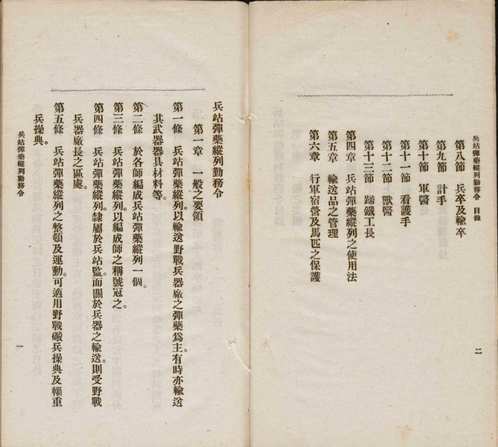 兵站彈藥縱列勤務令 目錄
第八節 兵卒及輸卒
第九節 計手
第十節 軍醫
第十一節 看護手
第十二節 獸醫
第十三節 蹄鐵工長
第四章 兵站彈藥縱列之使用法
第五章 輸送品之管理
第六章 行軍宿營及馬匹之保護
二
兵站彈藥縱列勤務令
第一章 一般之要領
第一條 兵站彈藥縱列。以輸送野戰兵器廠之彈藥爲主。有時亦輸送
其武器器具材料等。
第二條 於各師編成兵站彈藥縱列一個。
第三條 兵站彈藥縱列。以編成師之稱號冠之。
第四條 兵站彈藥縱列。隸屬於兵站監。而關於兵器之輸送。則受野戰
兵器廠長之區處。
第五條 兵站彈藥縱列之整頓及運動。可適用野戰礮兵操典及輜重
兵操典。
兵站彈藥縱列勤務令
一